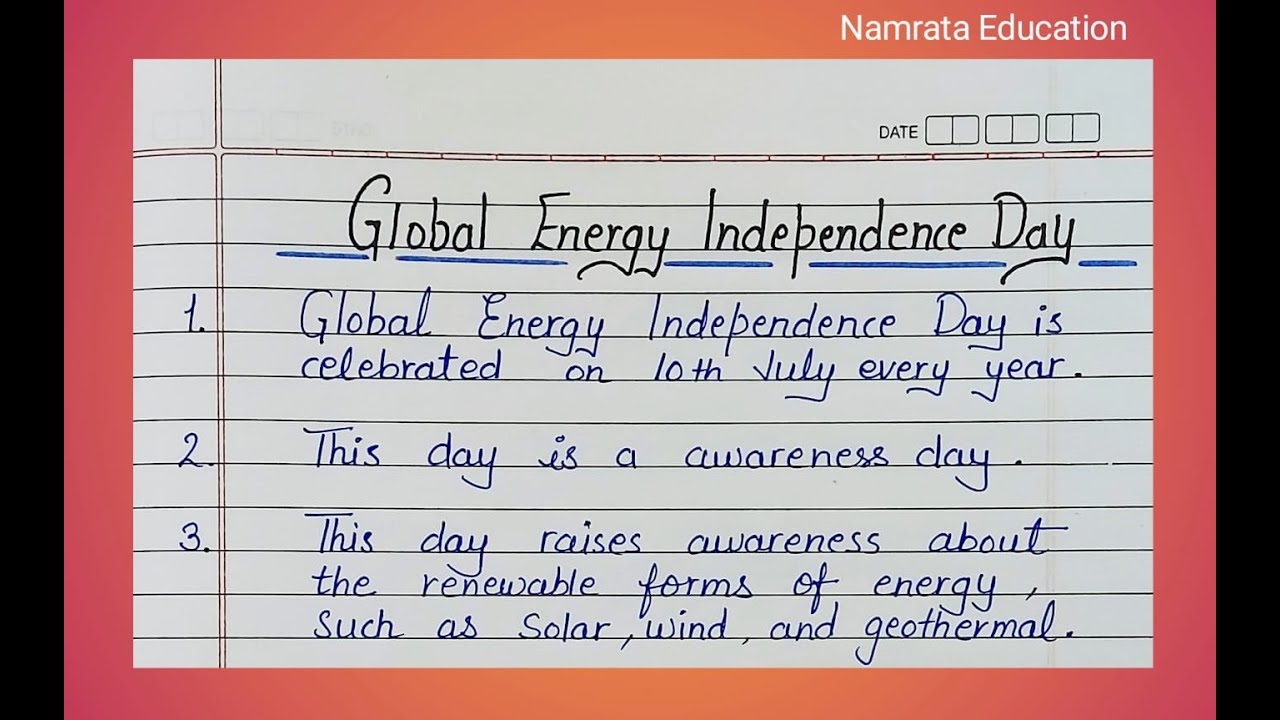 Namrata Education
DATE
Global Energy Independence Day
1. Global Energy Independence Day is
celebrated on 10th July every year.
2. This day is a awareness day.
3. This day raises awareness about
the renewable forms of energy,
such as solar, wind, and geothermal.